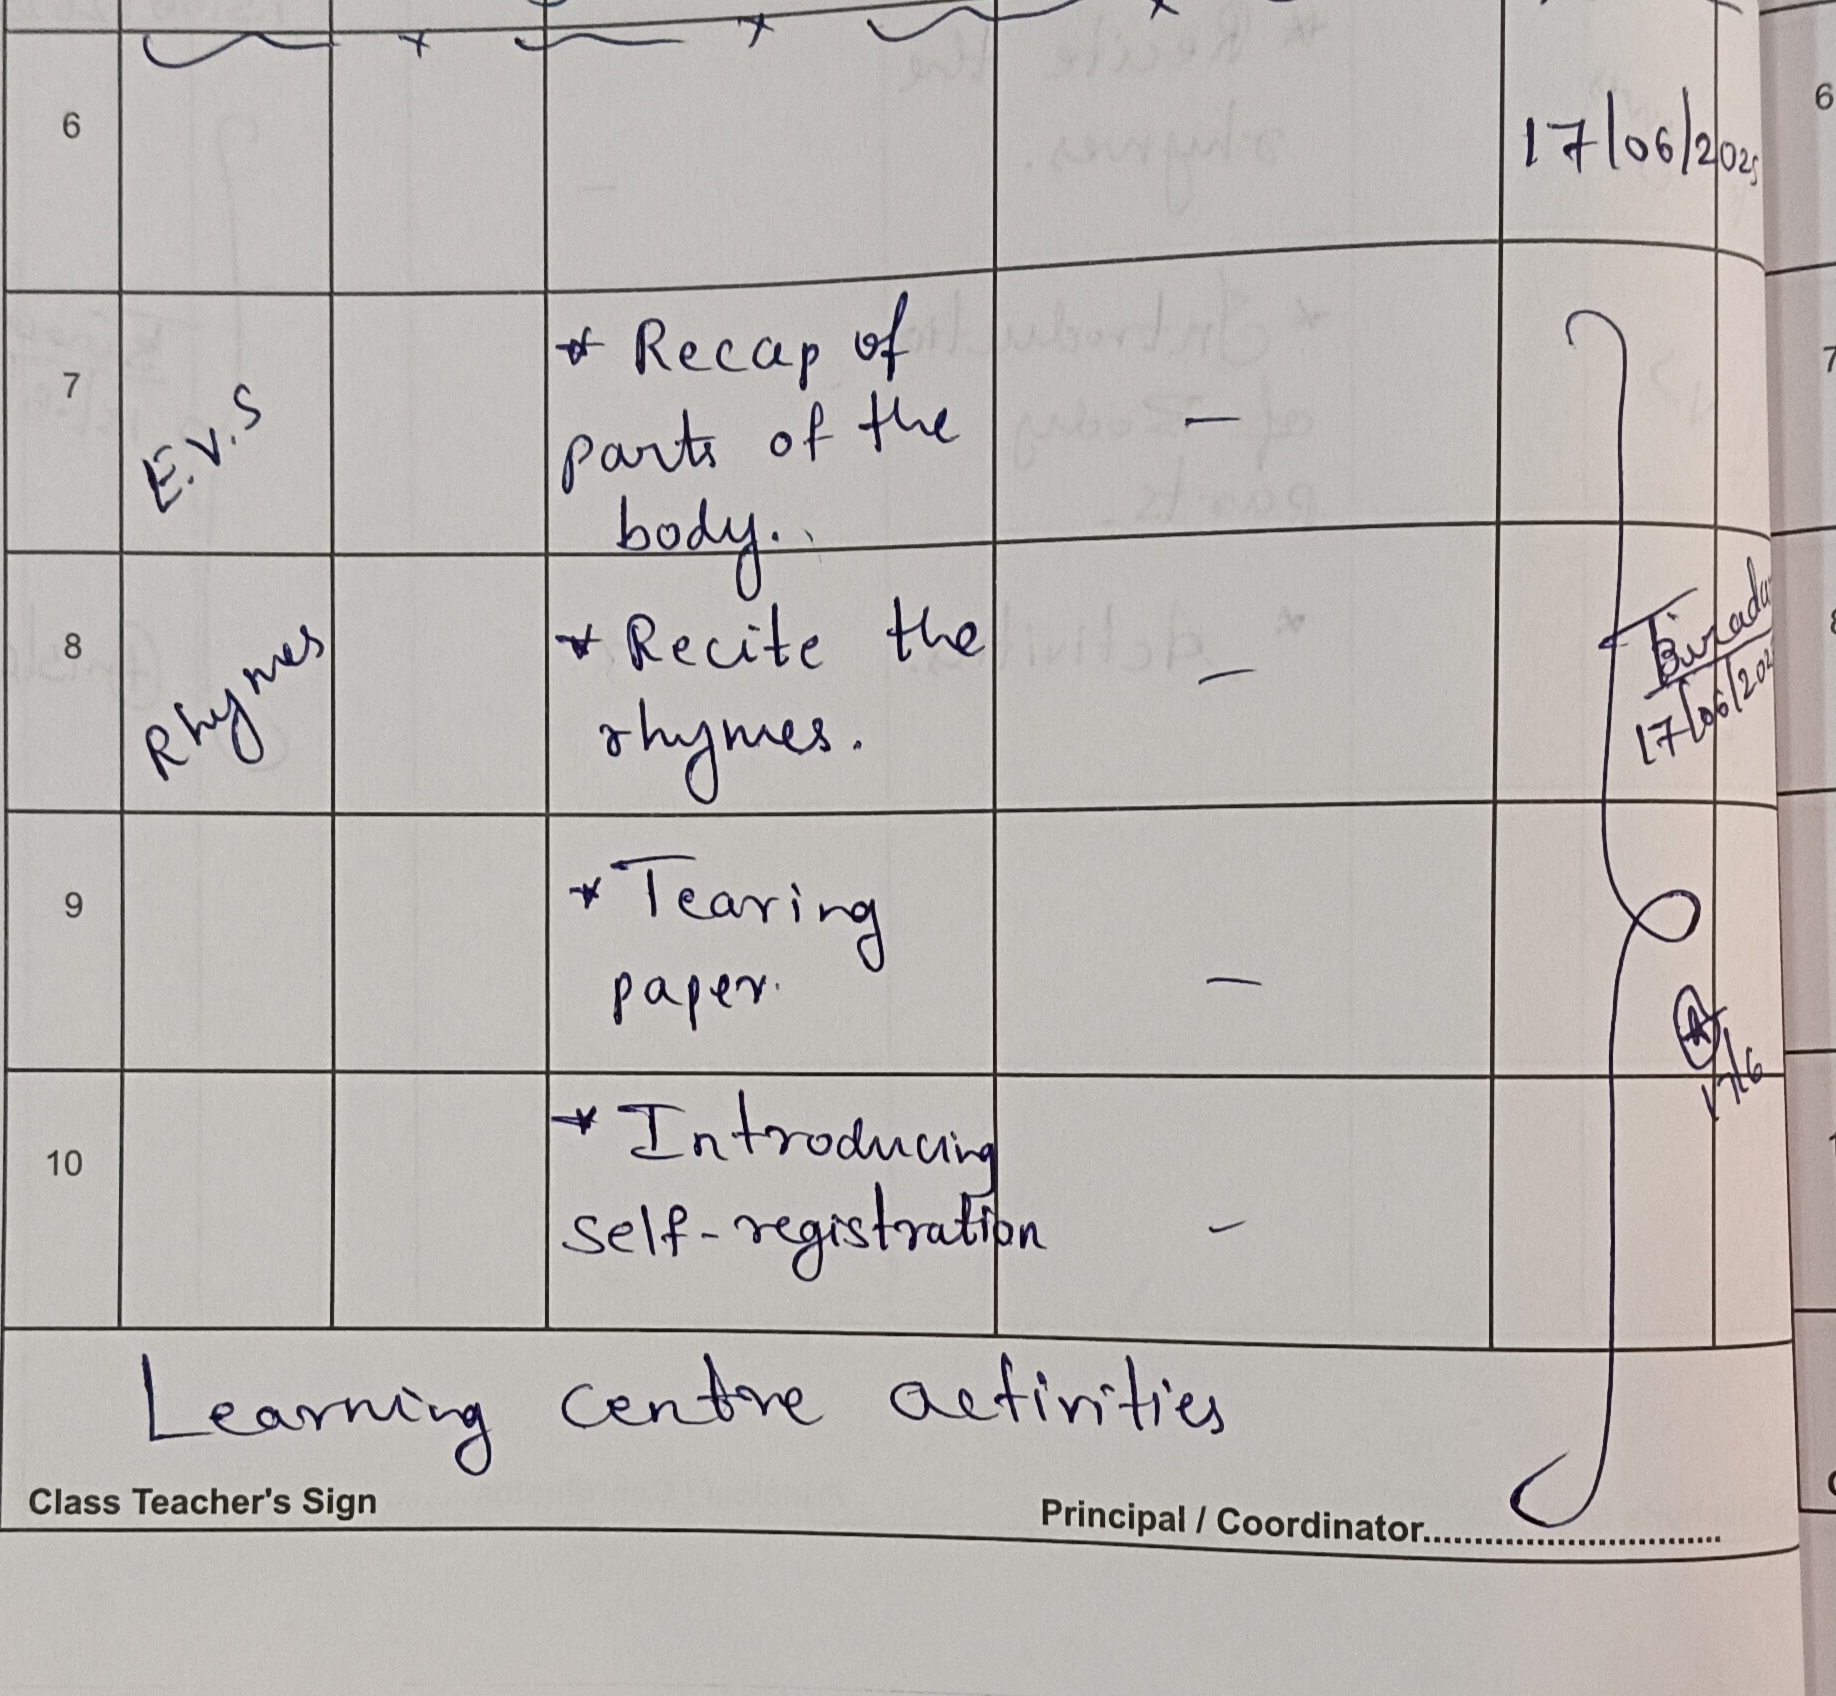 6
17/06/2025
7
E.V.S
* Recap of
parts of the
body.
-
8
Rhymes
* Recite the
rhymes.
-
Biradar
17/06/202
9
* Tearing
paper.
-
17/6
10
* Introducing
self-registration
-
Learning centre activities
Class Teacher's Sign
Principal / Coordinator..............................
6
7